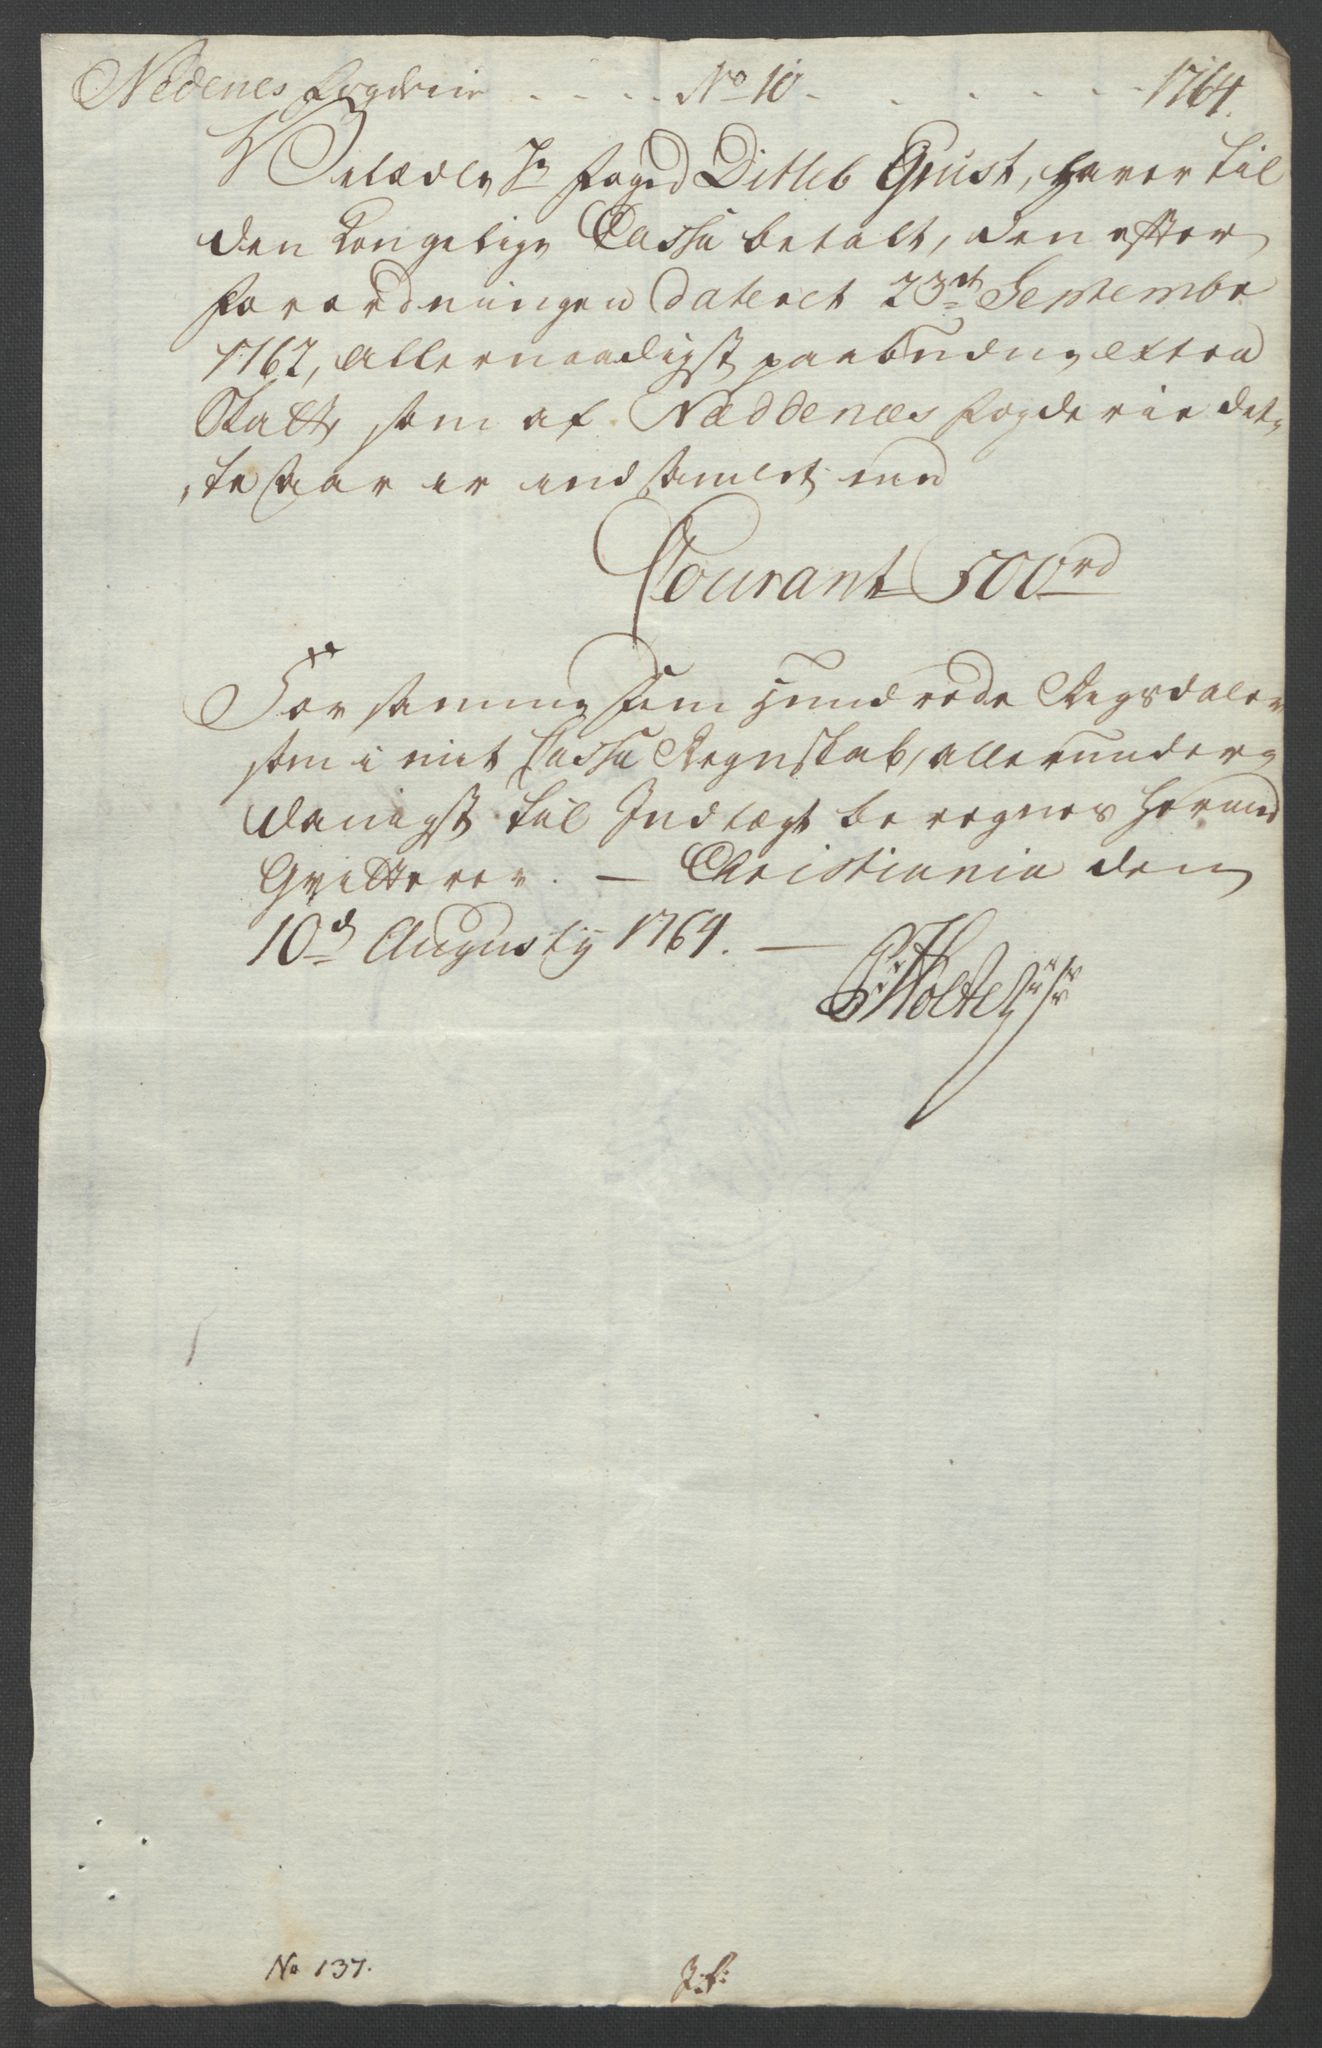 Nedenes Fogderie - - - - No 10 - - - - - - 1764.
Velædle Hr Foged Ditleb Grust, haver til
den Kongelige Cassa betalt, den efter
Forordningen dateret 23de Septembr
1762, allernaadigst paabudne extra
Skatt, som af Næddenæs Fogderie det-
te Aar er indsamlet med
Courant 500rd
For samme Fem Hundrede Rigsdaler
som i mit Cassa Regnskab, allerunder-
danigst til Indtægt beregnes herved
Qvitterer. — Christiania den
10d Augusty 1764. —
Holte
No 137.